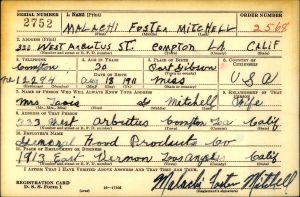 SERIAL NUMBER 1. NAME (Print) ORDER NUMBER
2752 MALACHI FOSTER MITCHELL 2568
2. ADDRESS (Print)
333 WEST ARBUTUS ST. COMPTON LA CALIF
3. TELEPHONE 4. AGE IN YEARS 5. PLACE OF BIRTH 6. COUNTRY OF CITIZENSHIP
Compton 30 Port Gibson
DATE OF BIRTH
12294 Aug 18 1911 Miss U S A
7. NAME OF PERSON WHO WILL ALWAYS KNOW YOUR ADDRESS
Mrs Mitchell Wife
9. ADDRESS OF THAT PERSON
333 West Arbutus Compton La Calif
10. EMPLOYER'S NAME
General Wood Products Co
11. PLACE OF EMPLOYMENT OR BUSINESS
1913 East Vernon Los Angeles Calif
I AFFIRM THAT I HAVE VERIFIED ABOVE ANSWERS AND THAT THEY ARE TRUE.
REGISTRATION CARD
D. S. S. Form 1 Malachi Foster Mitchell